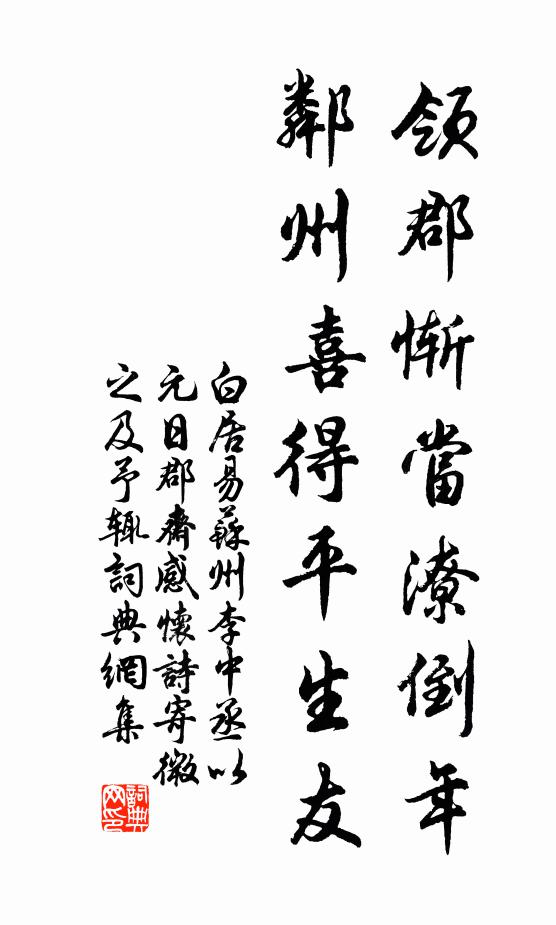 領郡慚當潦倒年
鄰州喜得平生友
白居易蘇州李中丞以
元日郡齋感懷詩寄微
之及予輒詞典網集
詞典网印